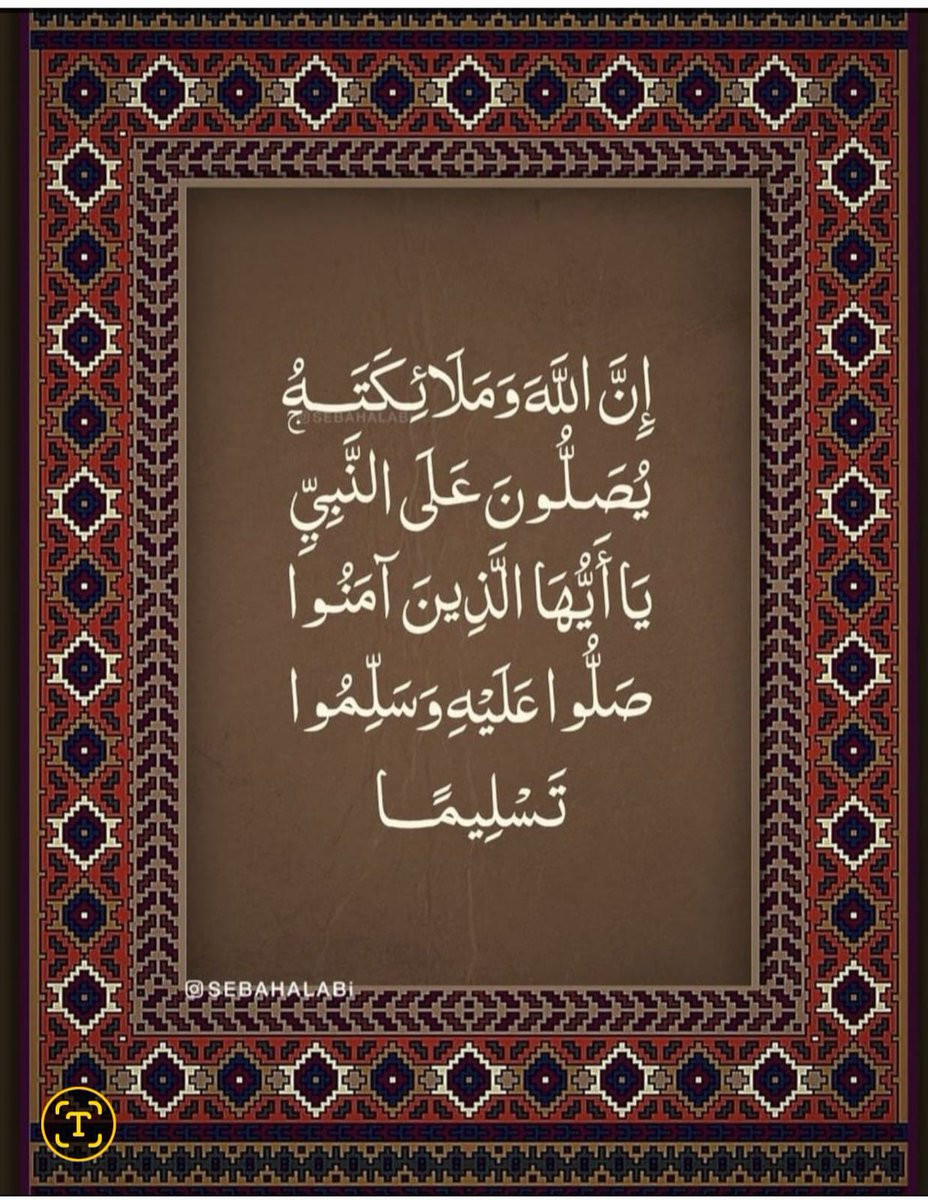 إِنَّ اللَّهَ وَمَلَائِكَتَهُ
@SEBAHALABi
يُصَلُّونَ عَلَى النَّبِيِّ
يَا أَيُّهَا الَّذِينَ آمَنُوا
صَلُّوا عَلَيْهِ وَسَلِّمُوا
تَسْلِيمًا
@SEBAHALABi
T